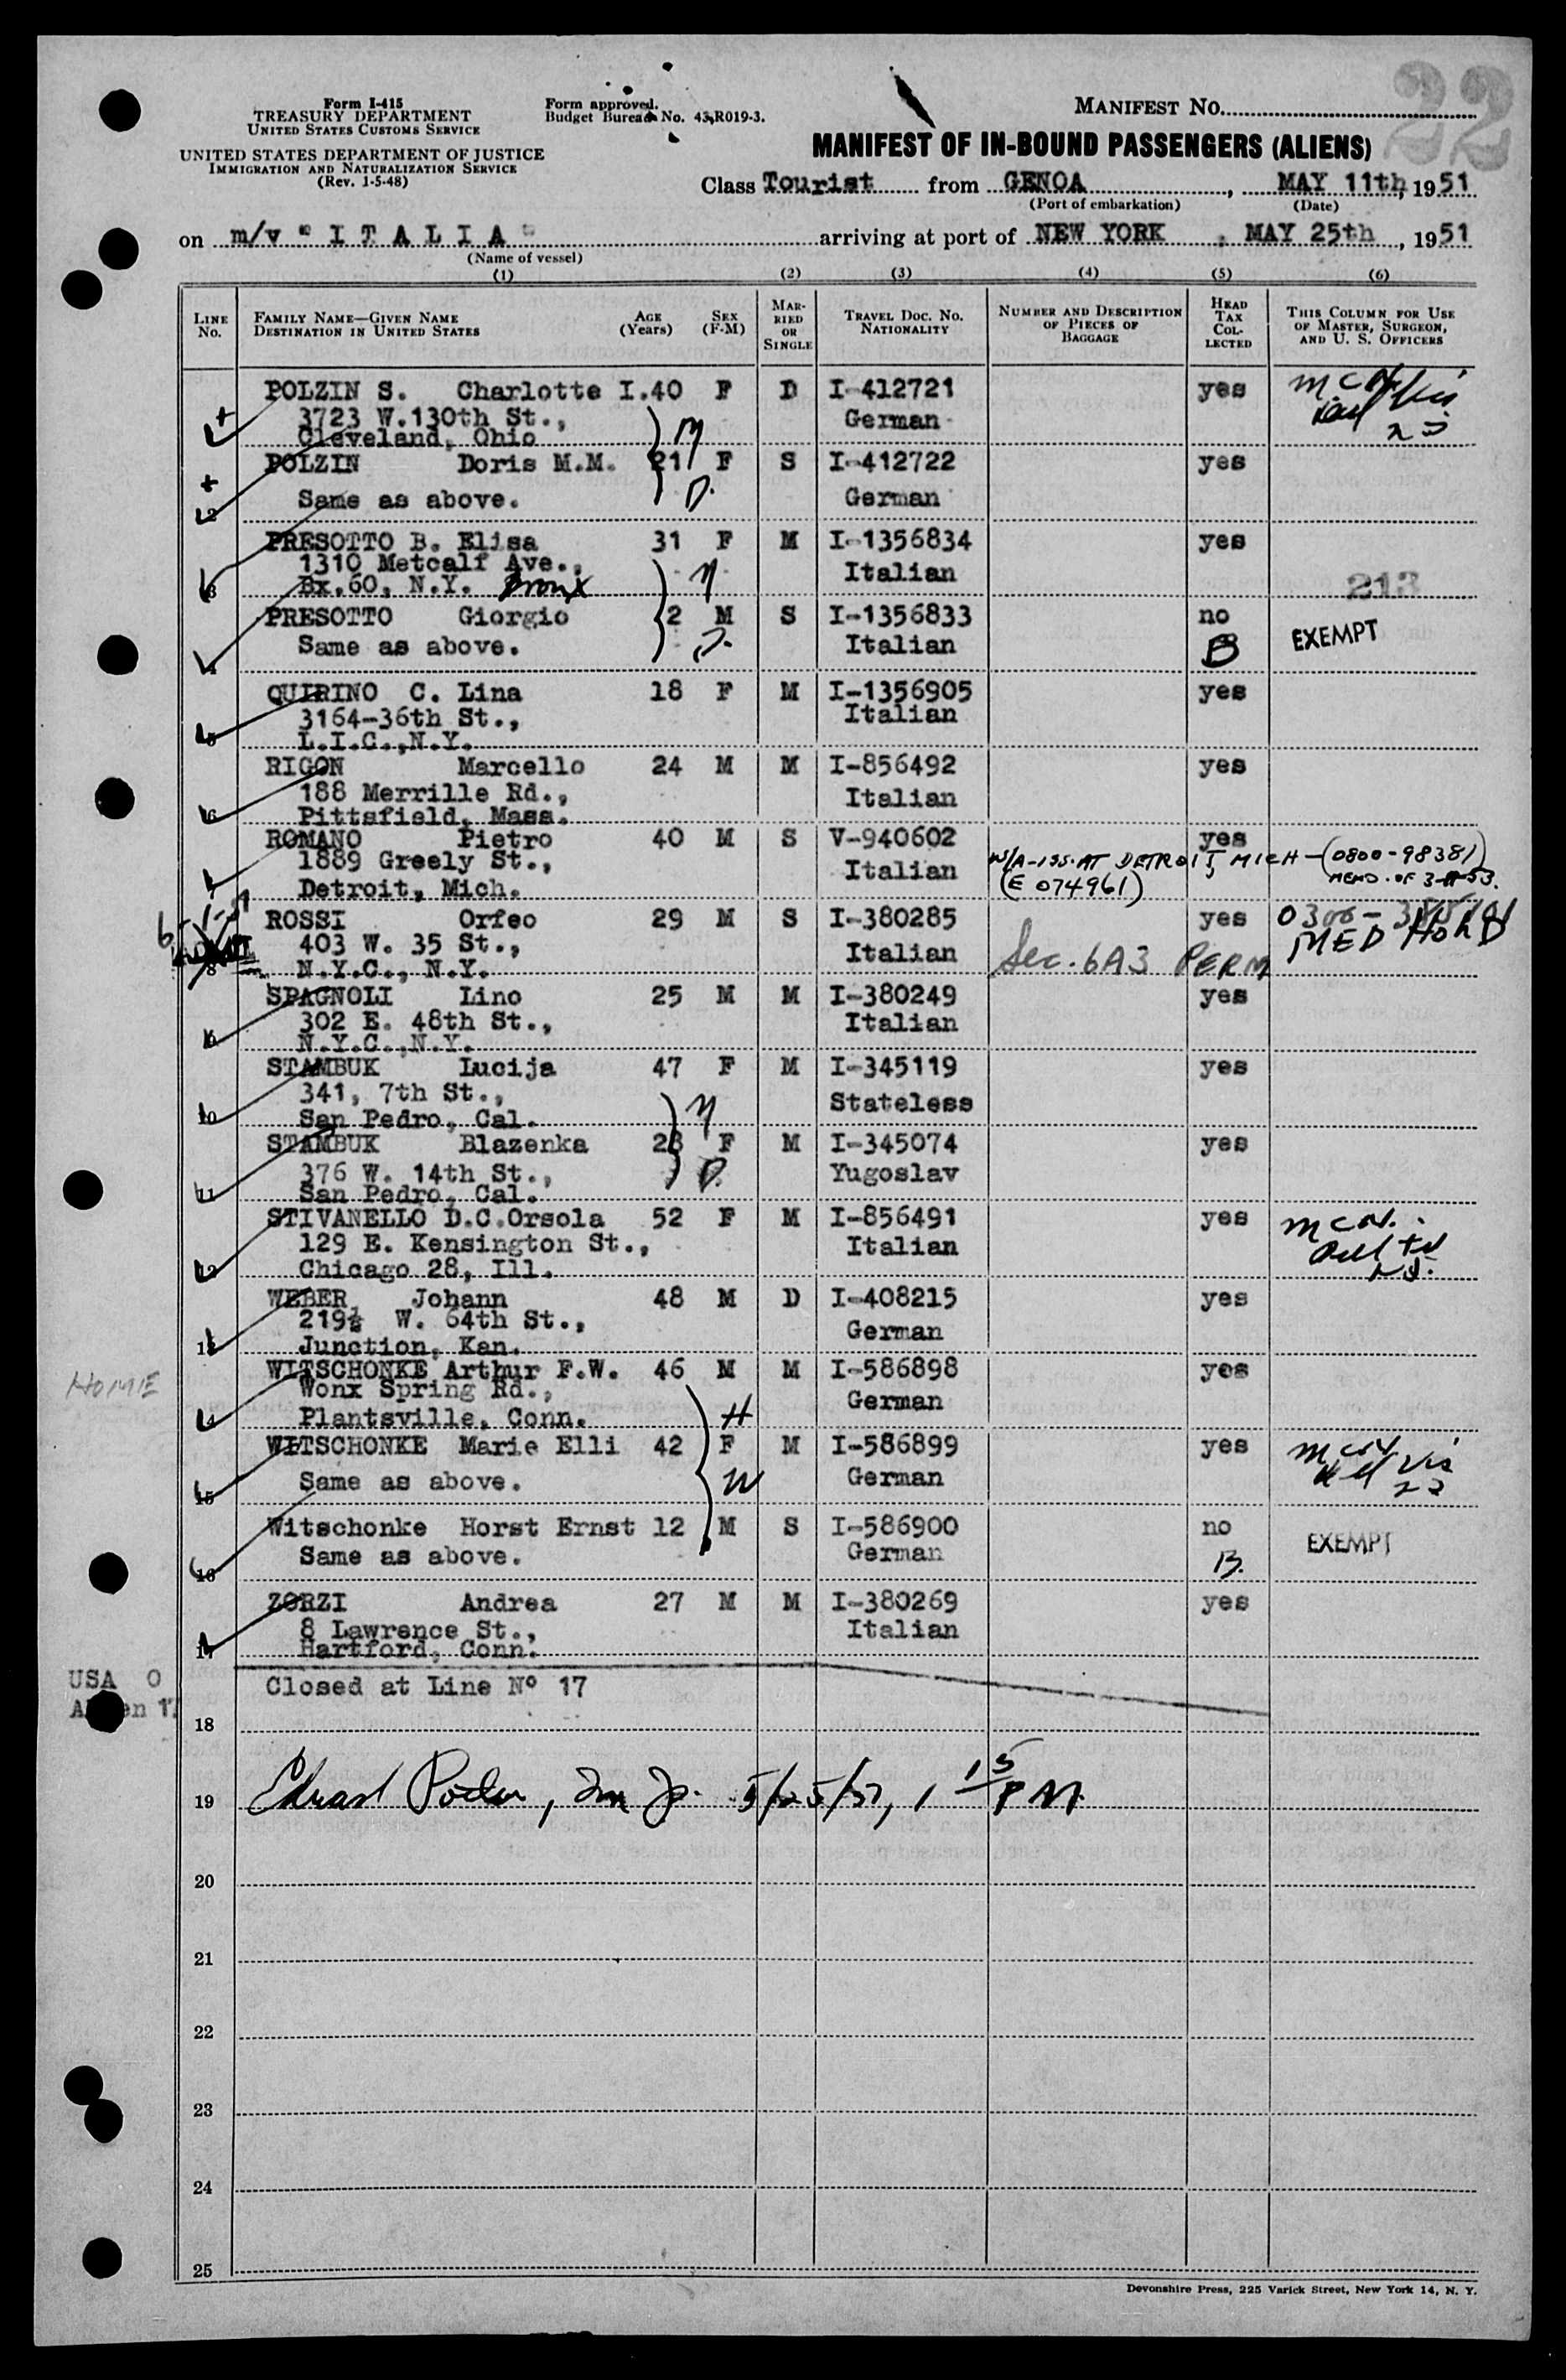 22
Form I-415
TREASURY DEPARTMENT
UNITED STATES CUSTOMS SERVICE
Form approved.
Budget Bureau No. 43-R019-3.
MANIFEST NO.
UNITED STATES DEPARTMENT OF JUSTICE
IMMIGRATION AND NATURALIZATION SERVICE
(Rev. 1-5-48)
MANIFEST OF IN-BOUND PASSENGERS (ALIENS)
Class Tourist from GENOA, MAY 11th, 1951
(Port of embarkation) (Date)
on m/v "ITALIA" arriving at port of NEW YORK, MAY 25th, 1951
(Name of vessel)
(1) (2) (3) (4) (5) (6)
LINE NO. FAMILY NAME—GIVEN NAME DESTINATION IN UNITED STATES AGE (Years) SEX (F-M) MARRIED OR SINGLE TRAVEL DOC. NO. NATIONALITY NUMBER AND DESCRIPTION OF PIECES OF BAGGAGE HEAD TAX COLLECTED THIS COLUMN FOR USE OF MASTER, SURGEON, AND U. S. OFFICERS
POLZIN S. Charlotte I. 40 F D I-412721 yes
3723 W.130th St., German
Cleveland, Ohio M
POLZIN Doris M.M. 21 F S I-412722 yes
2 Same as above. D. German
PRESOTTO B. Elisa 31 F M I-1356834 yes
1310 Metcalf Ave., Italian
3 Bx.60, N.Y. Bronx M 213
PRESOTTO Giorgio 2 M S I-1356833 no
4 Same as above. Italian B EXEMPT
QUIRINO C. Lina 18 F M I-1356905 yes
3164-36th St., Italian
5 L.I.C.,N.Y.
RIGON Marcello 24 M M I-856492 yes
188 Merrille Rd., Italian
6 Pittsfield, Mass.
ROMANO Pietro 40 M S V-940602 yes
1889 Greely St., Italian W/A-155-AT DETROIT, MICH-(0800-98381)
Detroit, Mich. (E 074961)
ROSSI Orfeo 29 M S I-380285 yes
403 W. 35 St., Italian MED HOLD
8 N.Y.C., N.Y. Sec. 6A3 PERM
SPAGNOLI Lino 25 M M I-380249 yes
302 E. 48th St., Italian
9 N.Y.C.,N.Y.
STAMBUK Lucija 47 F M I-345119 yes
341, 7th St., Stateless
10 San Pedro, Cal. M
STAMBUK Blazenka 23 F M I-345074 yes
376 W. 14th St., D. Yugoslav
11 San Pedro, Cal.
STIVANELLO D.C.Orsola 52 F M I-856491 yes
129 E. Kensington St., Italian
12 Chicago 28, Ill.
WEBER, Johann 48 M D I-408215 yes
219½ W. 64th St., German
13 Junction, Kan.
HOME
WITSCHONKE Arthur F.W. 46 M M I-586898 yes
Wonx Spring Rd., German
14 Plantsville, Conn. H
WITSCHONKE Marie Elli 42 F M I-586899 yes
15 Same as above. W German
Witschonke Horst Ernst 12 M S I-586900 no
16 Same as above. German B. EXEMPT
ZORZI Andrea 27 M M I-380269 yes
8 Lawrence St., Italian
17 Hartford, Conn.
USA 0
Alien 17
Closed at Line Nº 17
18
19 5/25/51, 1 15 PM.
20
21
22
23
24
25
Devonshire Press, 225 Varick Street, New York 14, N. Y.